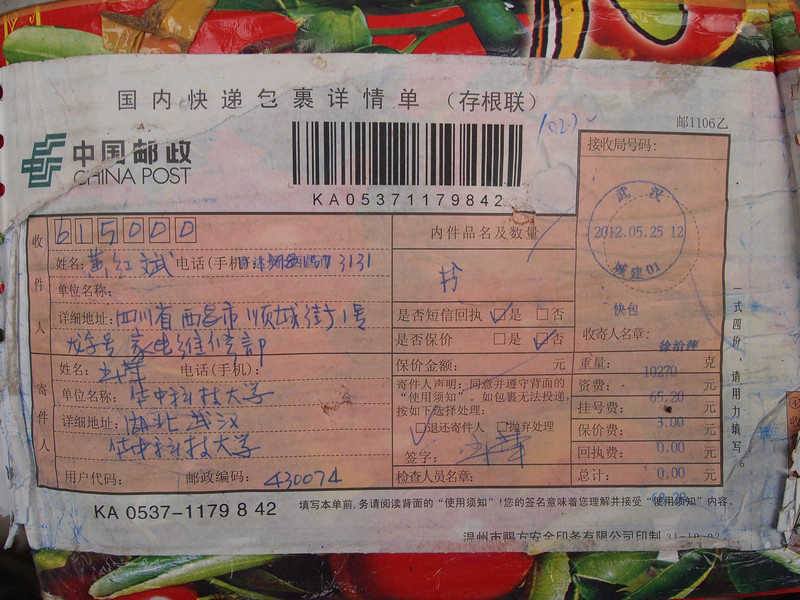 国内快递包裹详情单（存根联）
邮1106乙
中国邮政
CHINA POST
KA05371179842
接收局号码:
武汉
2012.05.25 12
城建01
快包
收寄人名章:
徐治萍
收件人
615000
姓名: 黄红斌 电话(手机 3131
单位名称:
详细地址: 四川省西昌市顺城街1号
家电维修部
内件品名及数量
书
是否短信回执 是 否
是否保价 是 否
保价金额: 元
寄件人
姓名: 电话(手机):
单位名称: 华中科技大学
详细地址: 湖北武汉
华中科技大学
用户代码: 邮政编码: 430074
寄件人声明:同意并遵守背面的
“使用须知”。如包裹无法投递,
按如下选择处理:
退还寄件人 抛弃处理
签字:
检查人员名章:
重量: 10270 克
资费: 65.20 元
挂号费: 3.00 元
保价费: 0.00 元
回执费: 0.00 元
总计: 68.20 元
一式四份,请用力填写。
KA 0537-1179 8 42
填写本单前,务请阅读背面的“使用须知”!您的签名意味着您理解并接受“使用须知”内容。
温州市赐方安全印务有限公司印制